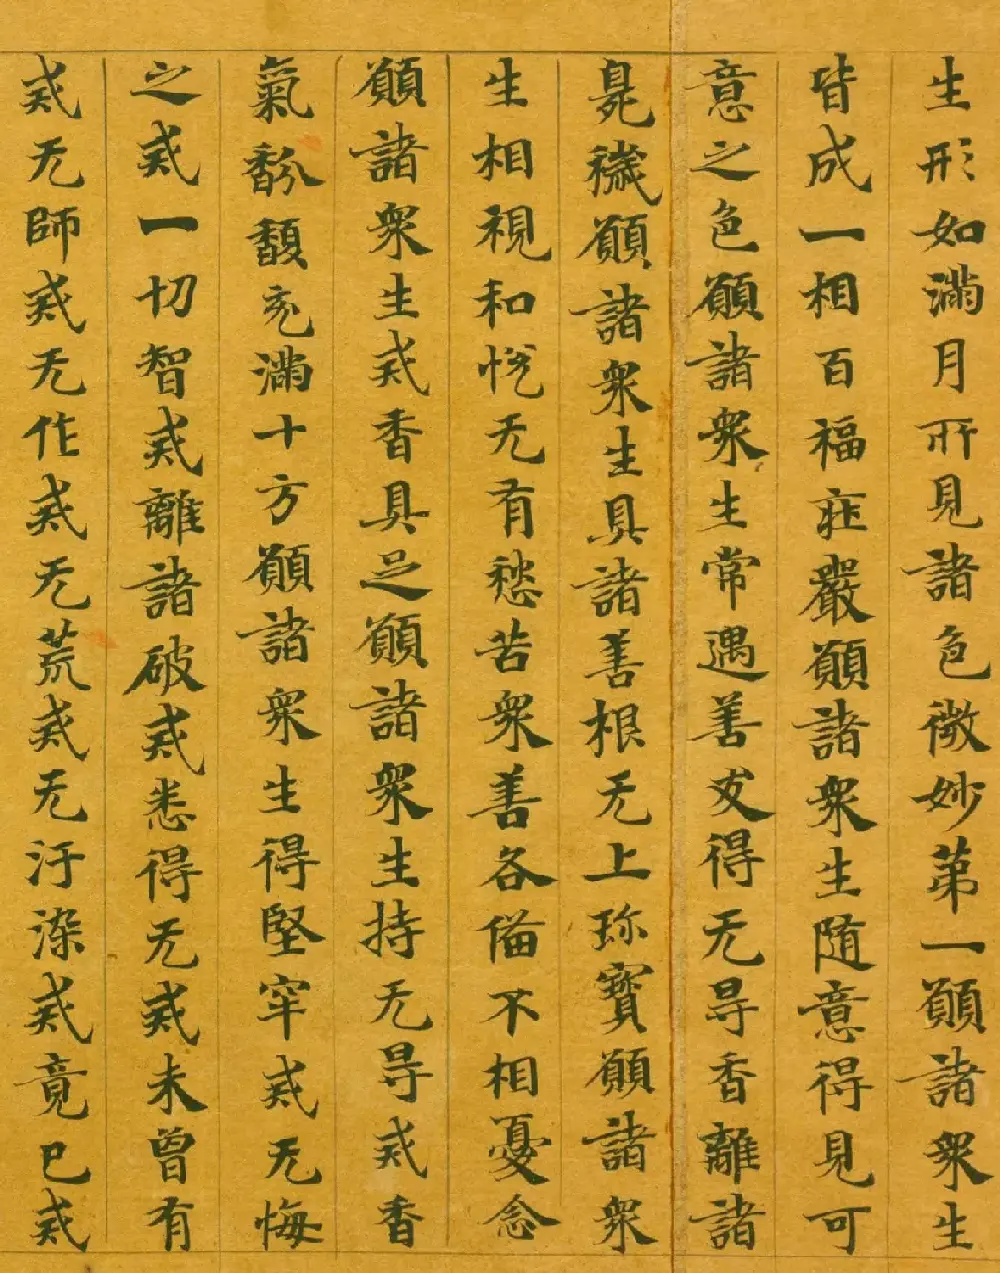 生形如滿月所見諸色微妙第一願諸衆生
皆成一相百福莊嚴願諸衆生隨意得見可
意之色願諸衆生常遇善友得无㝵香離諸
臰穢願諸衆生具諸善根无上珎寳願諸衆
生相視和悅无有愁苦衆善各俻不相憂念
願諸衆生戒香具足願諸衆生持无㝵戒香
氣馚馥充滿十方願諸衆生得堅牢戒无悔
之戒一切智戒離諸破戒悉得无戒未曾有
戒无師戒无作戒无荒戒无汙染戒竟已戒